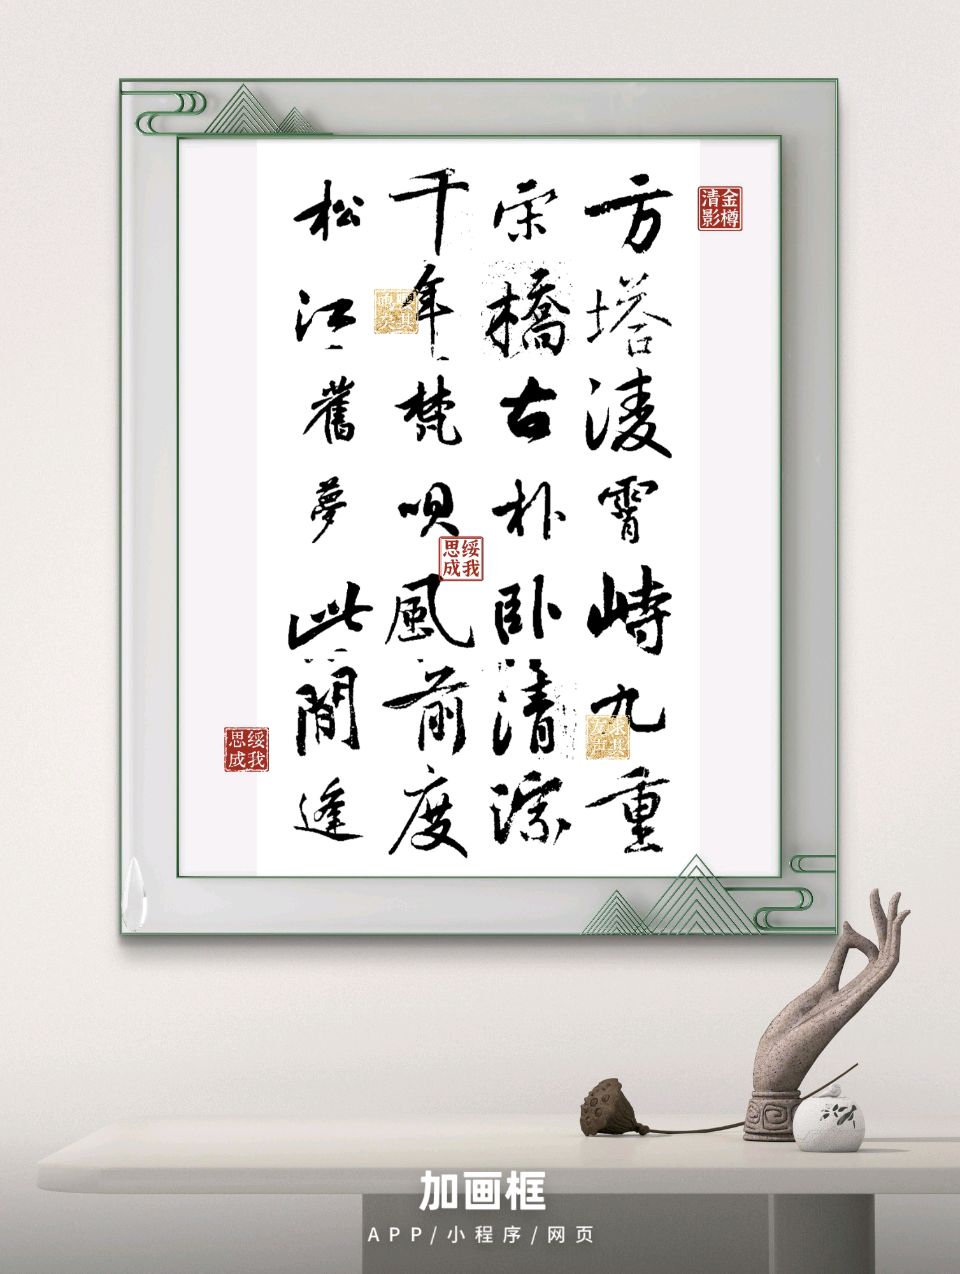 方塔凌霄峙九重
宋橋古朴卧清淙
千年梵唄風前度
松江舊夢此間逢
金樽清影
綏我思成
綏我思成
加画框
APP/小程序/网页